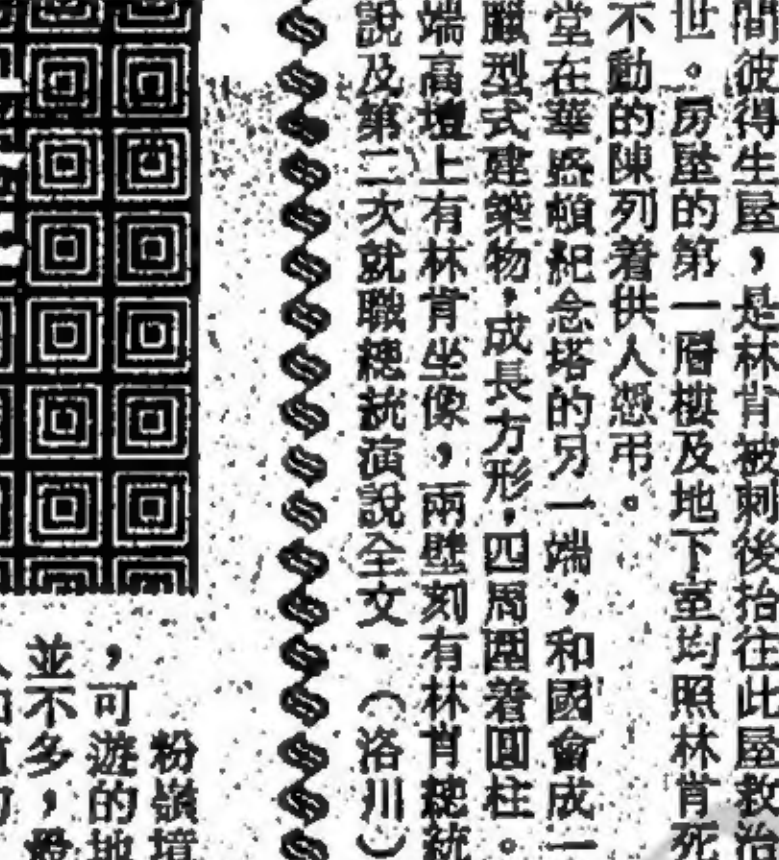 間彼得生屋，是林肯被刺後抬往此屋救治
世。房壂的第一層樓及地下室均照林肯死
不動的陳列着供人憑弔。
堂在華盛頓紀念塔的另一端，和國會成一
臘型式建築物，成長方形，四周圍着圓柱。
端高壇上有林肯坐像，兩壁刻有林肯總統
說及第二次就職總統演說全文。（洛川）
粉嶺境
，可遊的地
並不多，